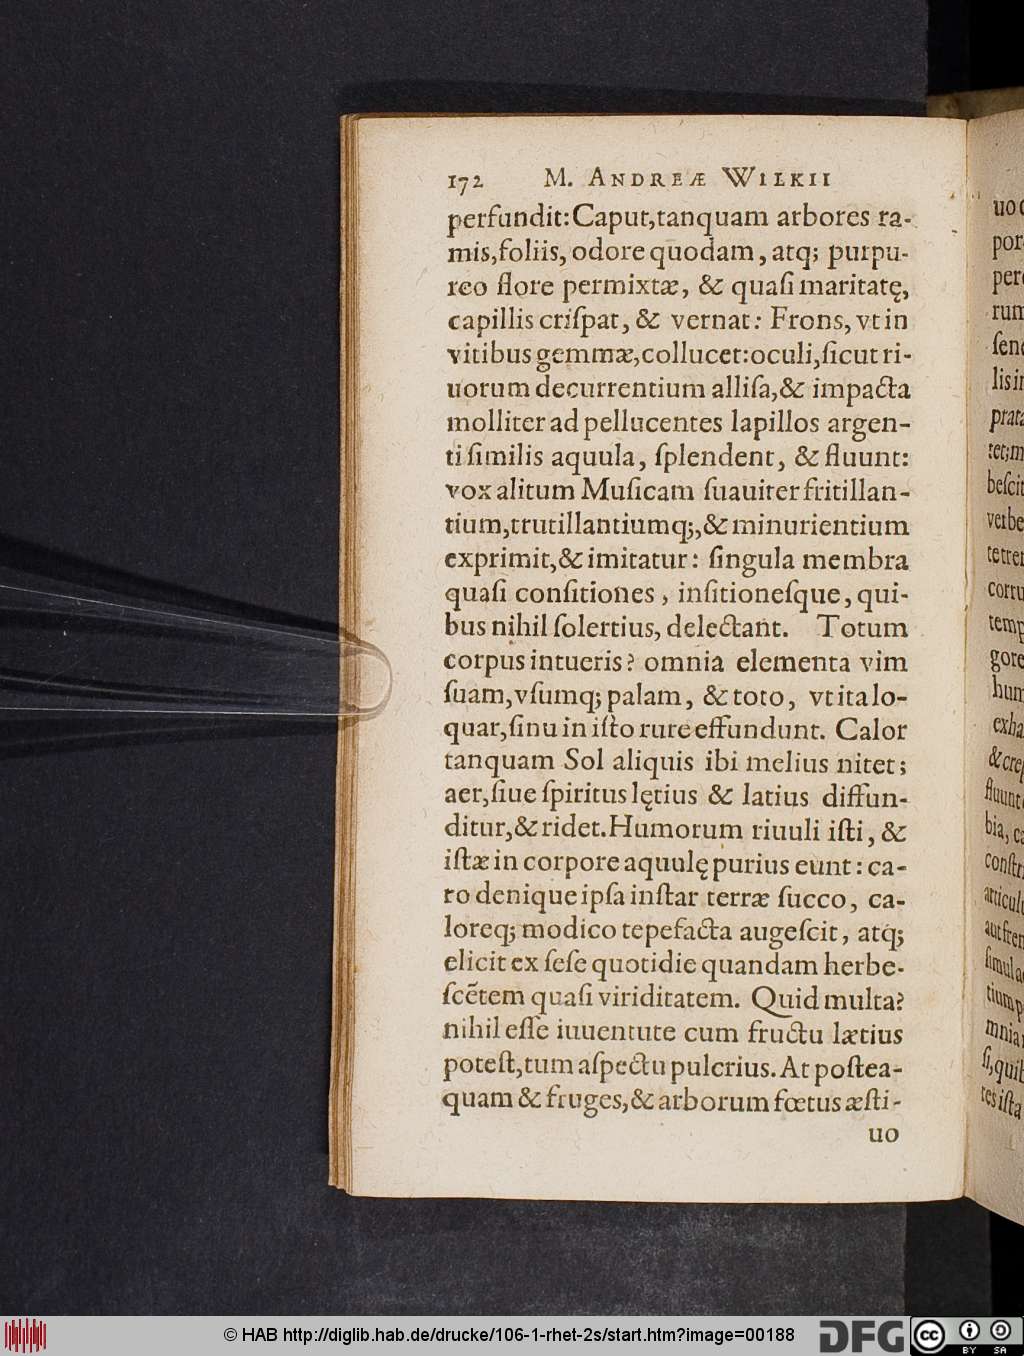 172 M. ANDREÆ WILKII
perfundit: Caput, tanquam arbores ra-
mis, foliis, odore quodam, atq; purpu-
reo flore permixtæ, & quaſi maritatę,
capillis criſpat, & vernat: Frons, vt in
vitibus gemmæ, collucet: oculi, ſicut ri-
uorum decurrentium alliſa, & impacta
molliter ad pellucentes lapillos argen-
ti ſimilis aquula, ſplendent, & fluunt:
vox alitum Muſicam ſuauiter fritillan-
tium, trutillantiumq;, & minurientium
exprimit, & imitatur: ſingula membra
quaſi conſitiones, inſitioneſque, qui-
bus nihil ſolertius, delectant. Totum
corpus intueris? omnia elementa vim
ſuam, vſumq; palam, & toto, vt ita lo-
quar, ſinu in iſto rure effundunt. Calor
tanquam Sol aliquis ibi melius nitet;
aer, ſiue ſpiritus lętius & latius diffun-
ditur, & ridet. Humorum riuuli iſti, &
iſtæ in corpore aquulę purius eunt: ca-
ro denique ipſa inſtar terræ ſucco, ca-
loreq; modico tepefacta augeſcit, atq;
elicit ex ſeſe quotidie quandam herbe-
ſcẽtem quaſi viriditatem. Quid multa?
nihil eſſe iuuentute cum fructu lætius
poteſt, tum aſpectu pulcrius. At poſtea-
quam & fruges, & arborum fœtus æſti-
uo
uo
por-
per
rum
ſen
lis in
prat
tet; m
beſcit
verbe
te tre
corru
temp
gore
hum
exha
& cre
fluunt
bia, ca
conſtr
articul
aut fren
ſimul a
tium p
mnia
ſi, qui
res iſta
© HAB http://diglib.hab.de/drucke/106-1-rhet-2s/start.htm?image=00188
DFG
cc BY SA